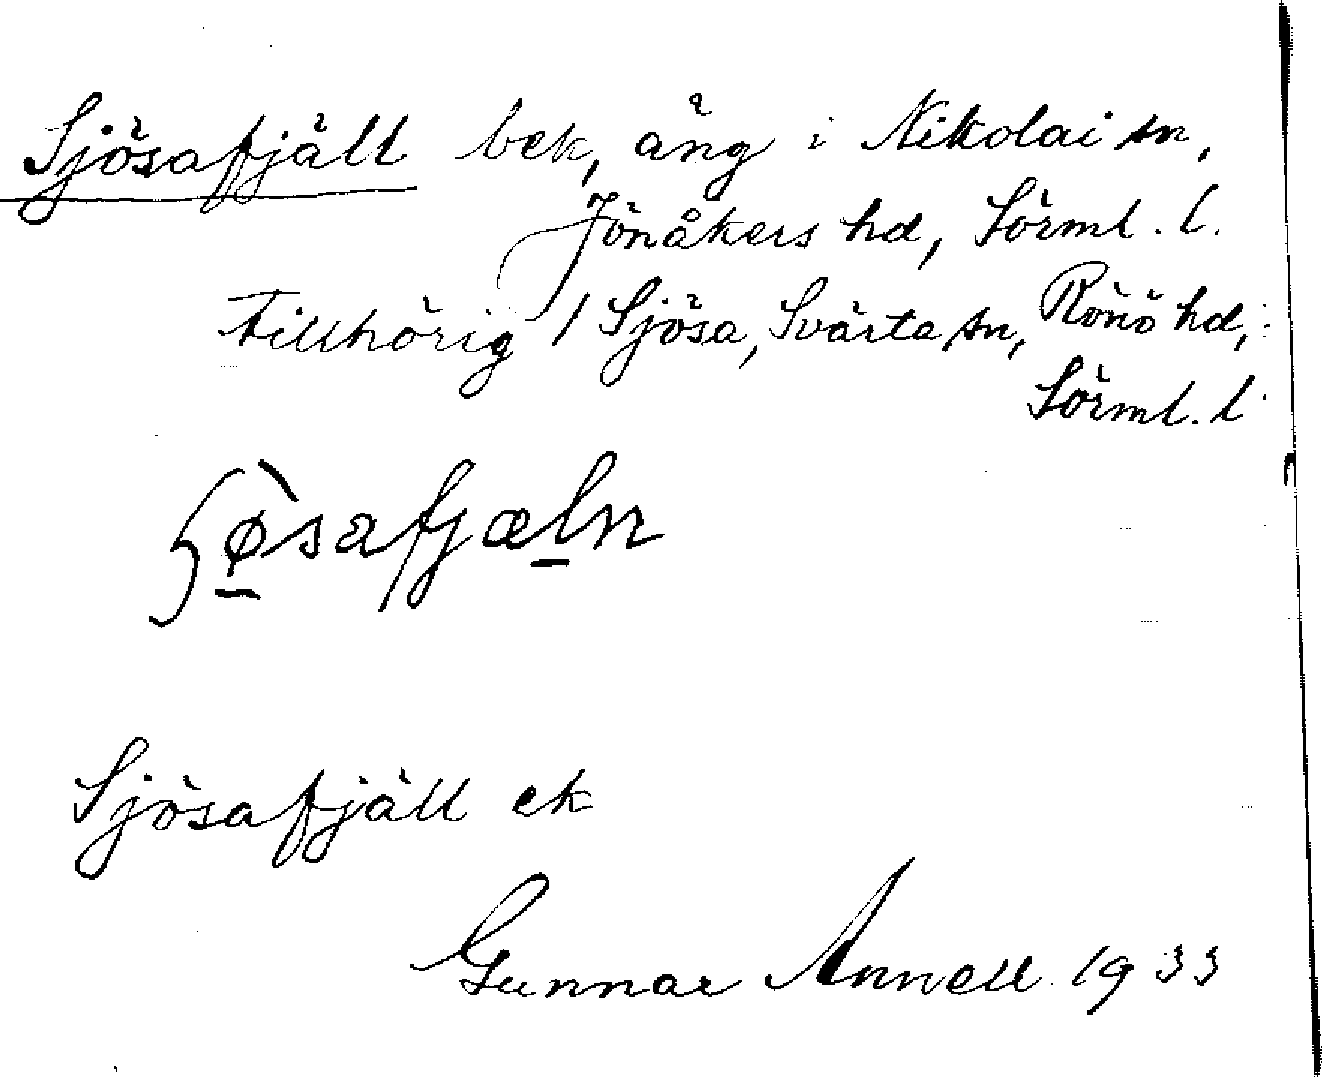 Sjösafjäll bek, äng i Nikolai sn,
Jönåkers hd, Sörml. l.
Tillhörig 1 Sjösa, Svärta sn, Rönö hd,
Sörml. l
Sjösafjäll ek
Gunnar Annell 1933